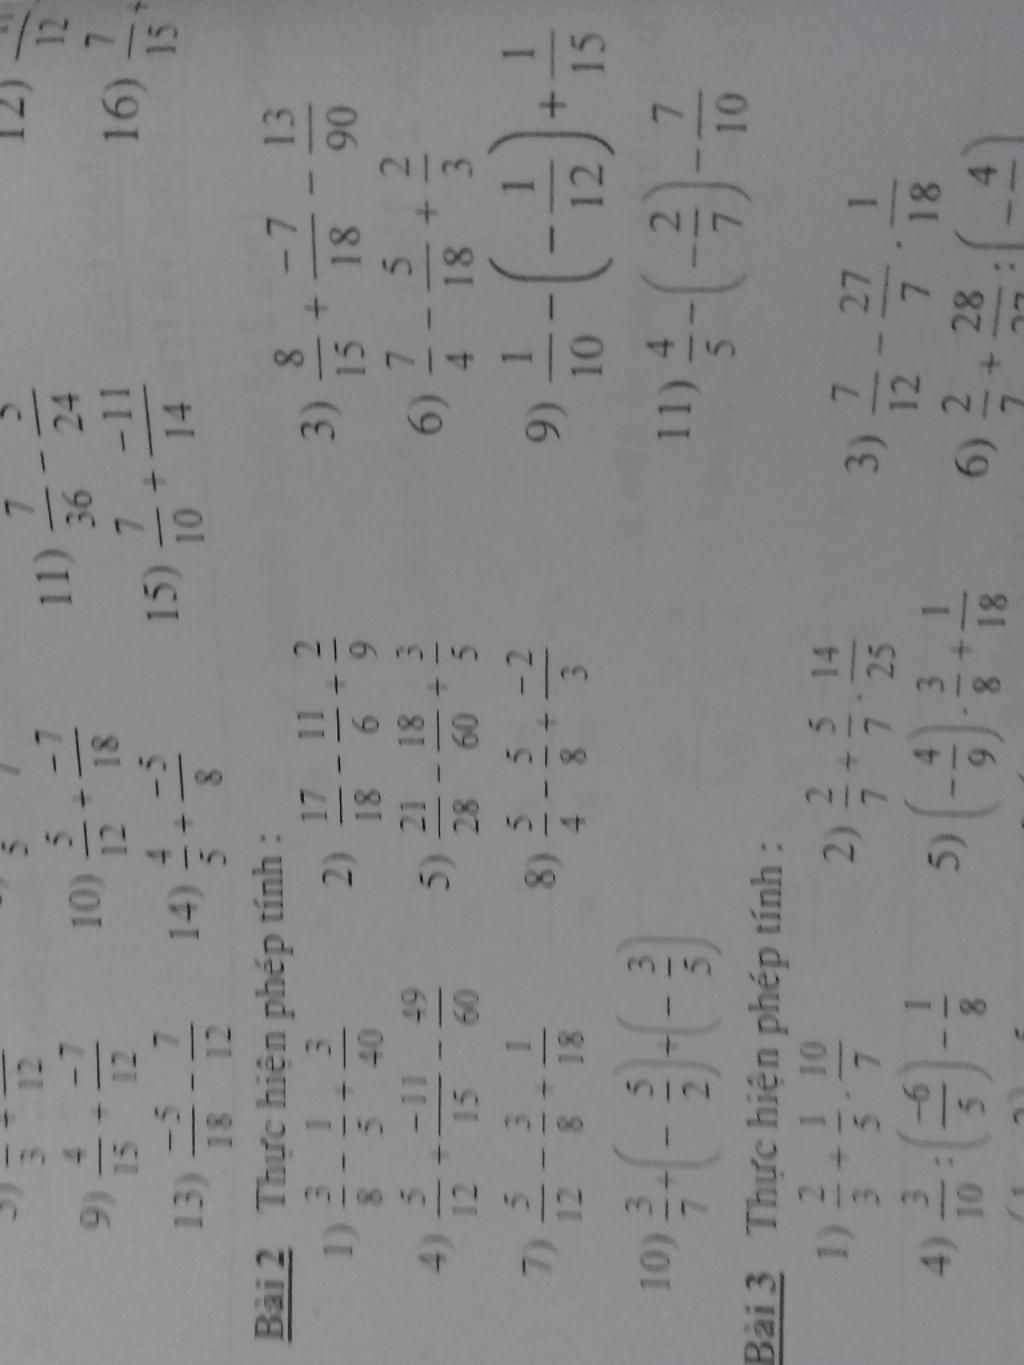 12
12)
3 12
5
11) 7/36 - /24
9) 4/15 + -7/12
10) 5/12 + -7/18
16) 7/15 +
13) -5/18 - 7/12
14) 4/5 + -5/8
15) 7/10 + -11/14
Bài 2 Thực hiện phép tính :
1) 3/8 - 1/5 + 3/40
2) 17/18 - 11/6 + 2/9
3) 8/15 + -7/18 - 13/90
4) 5/12 + -11/15 - 49/60
5) 21/28 - 18/60 + 3/5
6) 7/4 - 5/18 + 2/3
7) 5/12 - 3/8 + 1/18
8) 5/4 - 5/8 + -2/3
9) 1/10 - (-1/12) + 1/15
10) 3/7 + (-5/2) + (-3/5)
11) 4/5 - (-2/7) - 7/10
Bài 3 Thực hiện phép tính :
1) 2/3 + 1/5 . 10/7
2) 2/7 + 5/7 . 14/25
3) 7/12 - 27/7 . 1/18
4) 3/10 : (-6/5) - 1/8
5) (-4/9) . 3/8 + 1/18
6) 2/7 + 28/ : (-4/ )